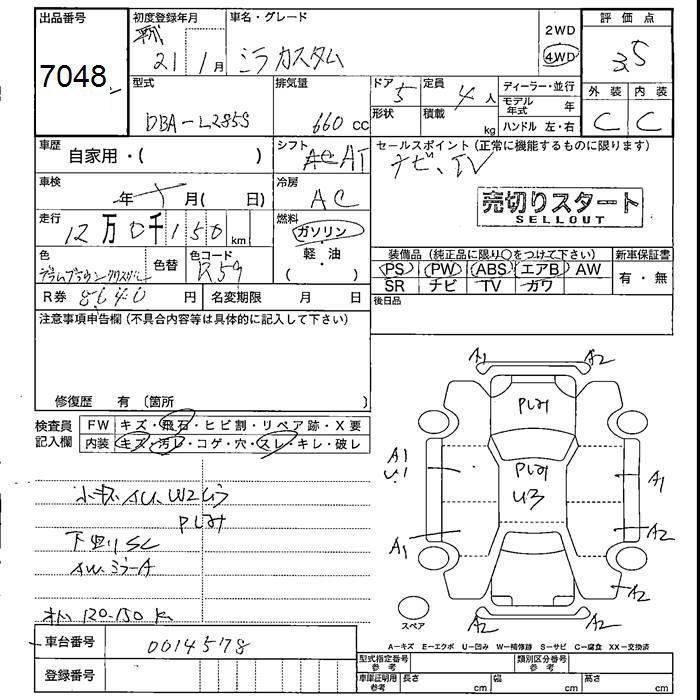 出品番号
7048
初度登録年月
平成
21 1月
車名・グレード
ミラカスタム
2WD
4WD
評価点
3.5
型式
DBA-L285S
排気量
660 cc
ドア
5
形状
定員
4人
積載
kg
ディーラー・並行
モデル年式 年
ハンドル 左・右
外装 内装
C C
車歴
自家用・( )
シフト
AT
セールスポイント(正常に機能するものに限ります)
ナビ、TV
売切りスタート
SELLOUT
車検
年 月( 日)
冷房
AC
走行
12万0千150km
燃料
ガソリン
軽・油
( )
色
色替
色コード
R59
装備品(純正品に限り○をつけて下さい)
新車保証書
PS PW ABS エアB AW
SR ナビ TV カワ
有・無
R券 8640円
名変期限 月 日
後日品
注意事項申告欄(不具合内容等は具体的に記入して下さい)
修復歴 有(箇所
検査員記入欄
FW キズ・飛石・ヒビ割・リペア跡・X要
内装 キズ・汚レ・コゲ・穴・スレ・キレ・破レ
小キズ AU、W2 U3
下廻りSC
120-150
A1 A2
A1
U1
A1
A1
A2
A2
A2 A2
U3
スペア
A-キズ E-エクボ U-凹み W-補修跡 S-サビ C-腐食 XX-交換済
車台番号
0014578
登録番号
型式指定番号 参考
類別区分番号 参考
車庫証明用 参考
長さ cm
幅 cm
高さ cm